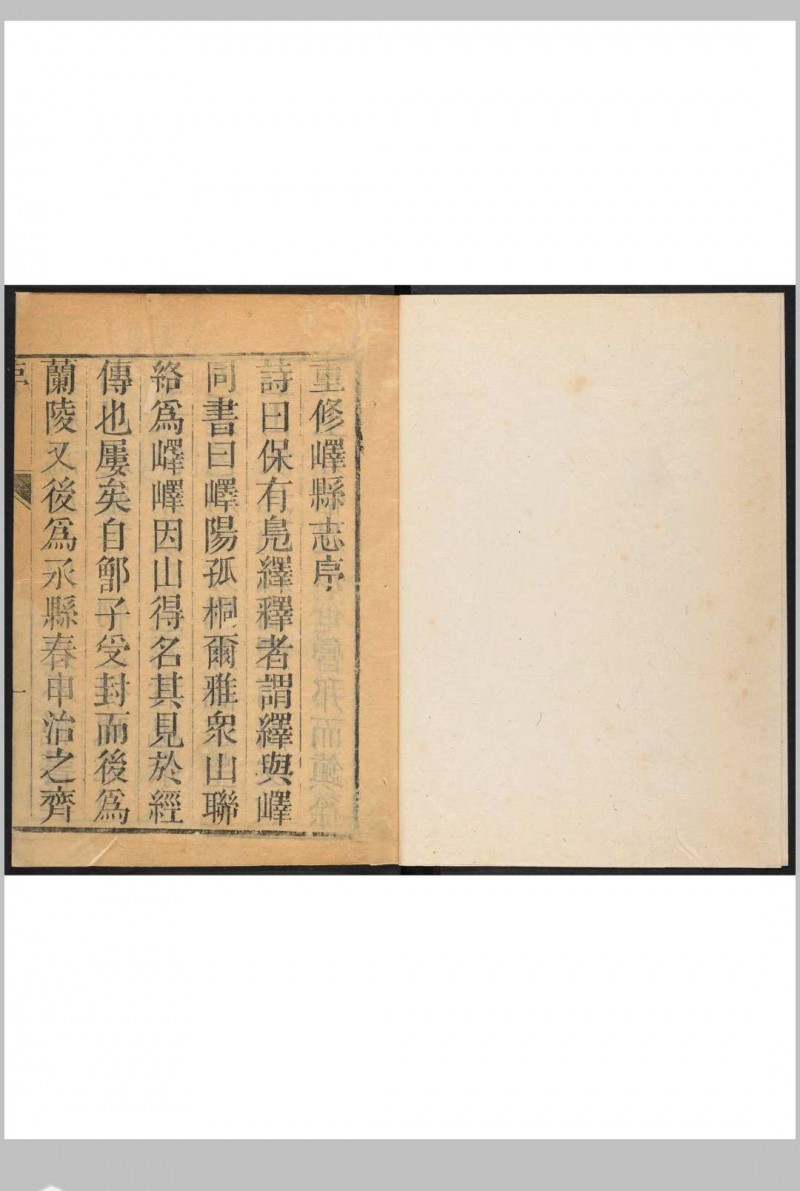 重修嶧縣志序
詩曰保有鳧繹釋者謂繹與嶧
同書曰嶧陽孤桐爾雅衆山聯
絡爲嶧嶧因山得名其見於經
傳也屢矣自鄫子受封而後爲
蘭陵又後爲氶縣春申治之齊
序
一